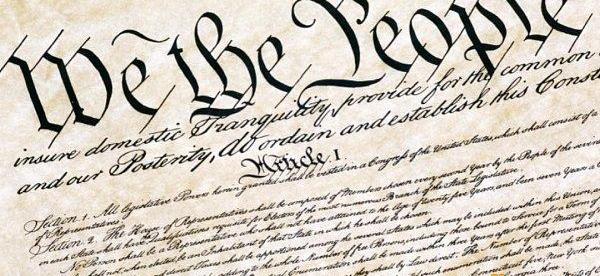 We the People
insure domestic Tranquility, provide for the common
and our Posterity, do ordain and establish this Const
Article. I.
Section. 1. All legislative Powers herein granted shall be vested in a Congress of the United States, which shall consist of a
of Representatives.
Section. 2. The House of Representatives shall be composed of Members chosen every second Year by the People of the several
in each State shall have the Qualifications requisite for Electors of the most numerous Branch of the State Legislature.
No Person shall be a Representative who shall not have attained to the Age of twenty five Years, and been seven Years a
shall not, when elected, be an Inhabitant of that State in which he shall be chosen.
and direct Taxes shall be apportioned among the several States which may be included within this Union,
adding to the whole Number of free Persons, including those bound to Service for a Term of
Enumeration shall be made within three Years after the first Meeting of
shall by Law direct. The Number of
shall be made, the State
five, New York